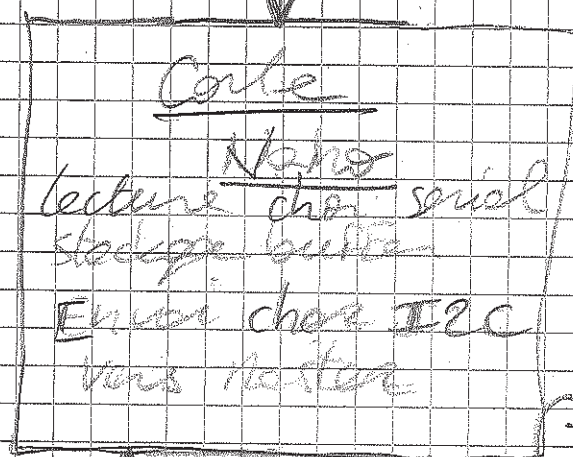 Carte
Nano
lecture char serial
stockage buffer
Envoi char I2C
vers Master